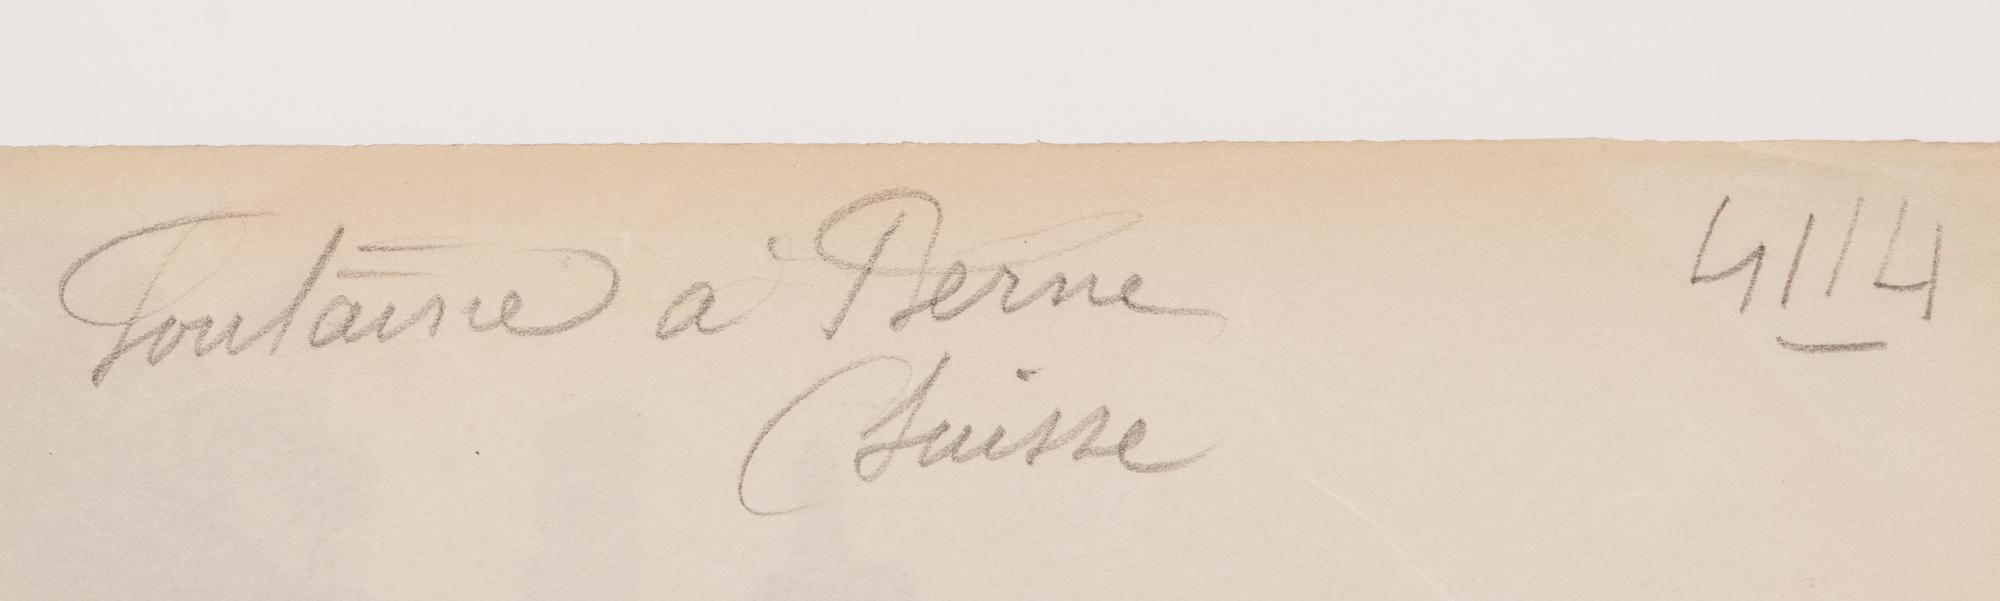 Fontaine à Berne 4114
Suisse